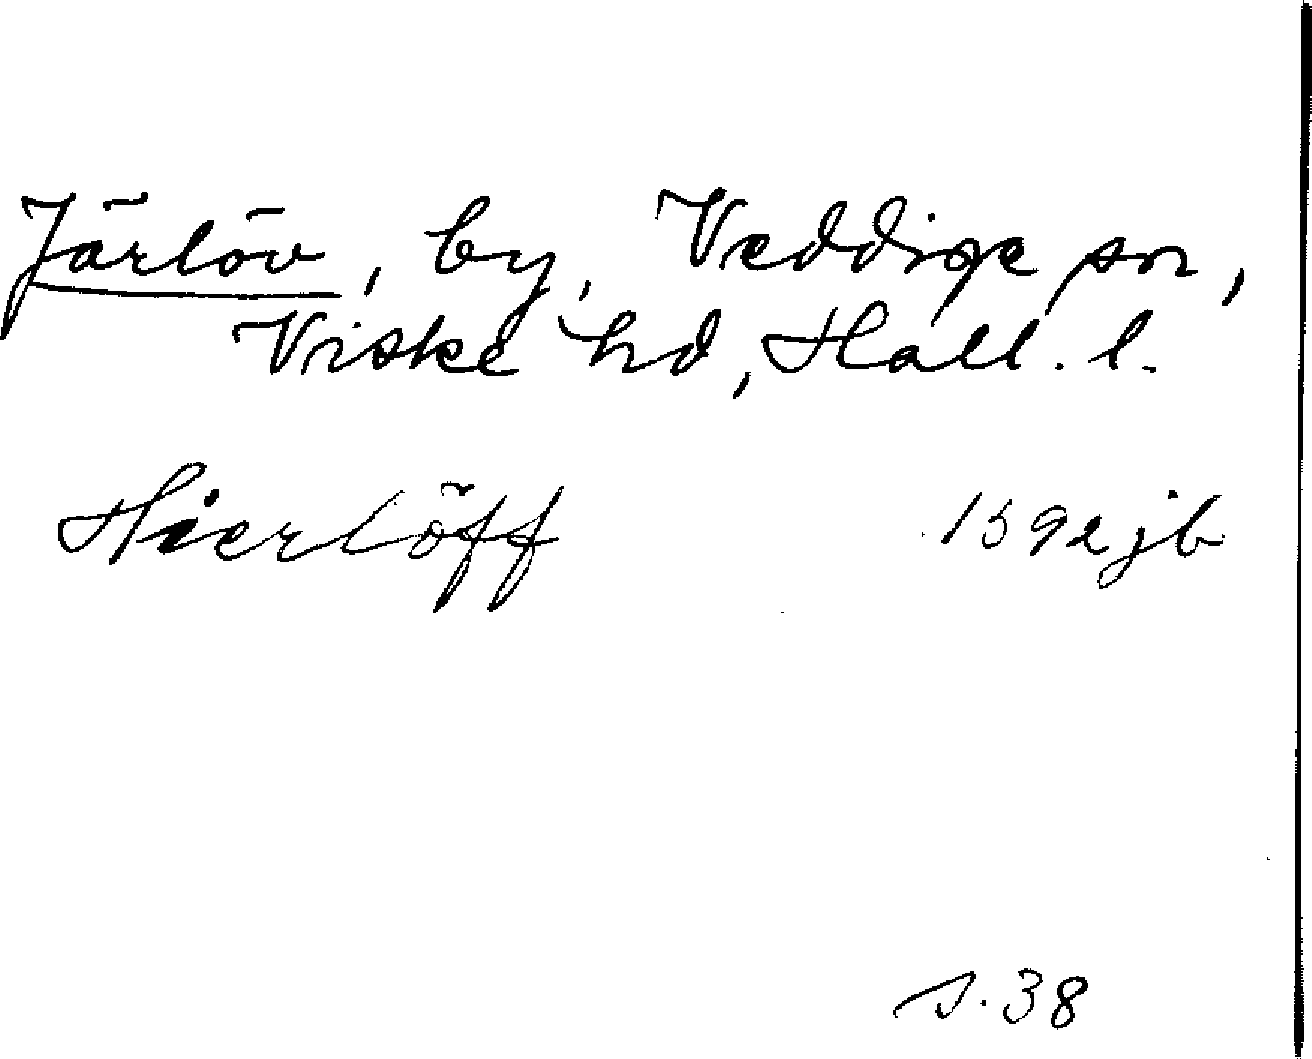 Järlöv, by, Veddige sn,
Viske hd, Hall. l.
Hierlöff 1592 jb
s. 38